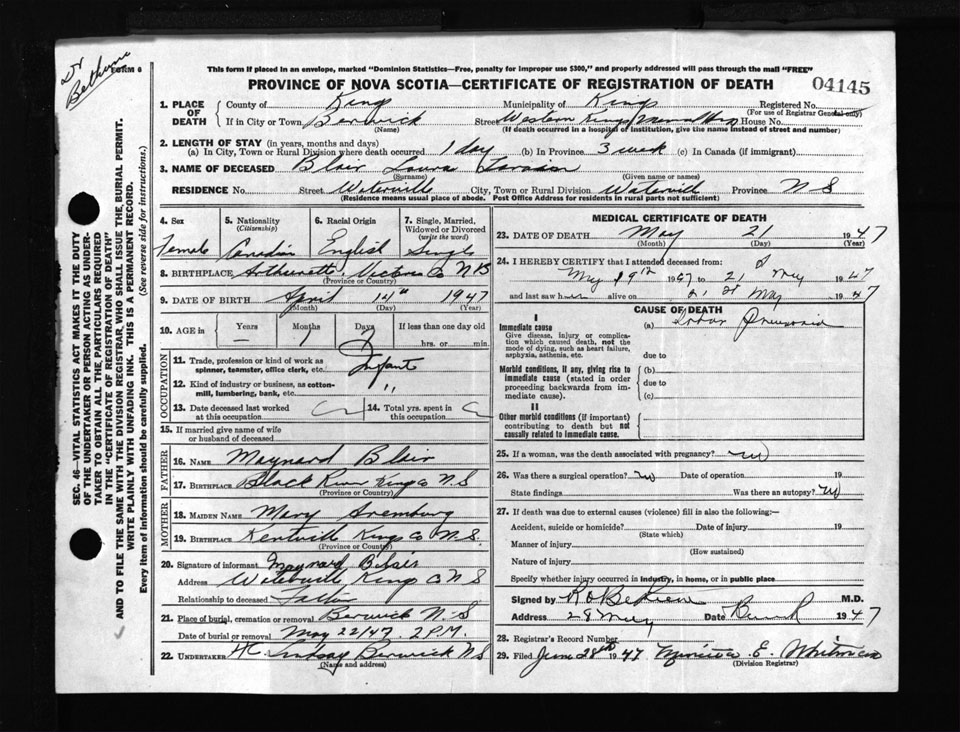 Dr
Bethune
FORM 6
This form if placed in an envelope, marked "Dominion Statistics—Free, penalty for improper use $300," and properly addressed will pass through the mail "FREE"
PROVINCE OF NOVA SCOTIA—CERTIFICATE OF REGISTRATION OF DEATH
04145
1. PLACE OF DEATH
County of Kings Municipality of Kings Registered No.
(For use of Registrar General only)
If in City or Town Berwick Street Western Kings Memorial House No.
(Name) (If death occurred in a hospital of institution, give the name instead of street and number)
2. LENGTH OF STAY (in years, months and days)
(a) In City, Town or Rural Division where death occurred 1 day (b) In Province 3 week (c) In Canada (if immigrant)
3. NAME OF DECEASED Blair Laura
(Surname) (Given name or names)
RESIDENCE No. Street Waterville City, Town or Rural Division Waterville Province N S
(Residence means usual place of abode. Post Office Address for residents in rural parts not sufficient)
4. Sex Female
5. Nationality (Citizenship) Canadian
6. Racial Origin English
7. Single, Married, Widowed or Divorced (write the word) Single
8. BIRTHPLACE Victoria Co N B
(Province or Country)
9. DATE OF BIRTH April 14th 1947
(Month) (Day) (Year)
10. AGE in Years — Months 1 Days 7 If less than one day
hrs. or min.
OCCUPATION
11. Trade, profession or kind of work as spinner, teamster, office clerk, etc. Infant
12. Kind of industry or business, as cotton-mill, lumbering, bank, etc. "
13. Date deceased last worked at this occupation
14. Total yrs. spent in this occupation
15. If married give name of wife or husband of deceased
FATHER
16. NAME Maynard Blair
17. BIRTHPLACE Black River Kings Co N S
(Province or Country)
MOTHER
18. MAIDEN NAME Mary
19. BIRTHPLACE Kentville Kings Co N.S.
(Province or Country)
20. Signature of informant Maynard Blair
Address Waterville Kings Co N S
Relationship to deceased Father
21. Place of burial, cremation or removal Berwick N.S
Date of burial or removal May 22/47. 2 P.M.
22. UNDERTAKER Lindsay Berwick N S
(Name and address)
MEDICAL CERTIFICATE OF DEATH
23. DATE OF DEATH May 21 1947
(Month) (Day) (Year)
24. I HEREBY CERTIFY that I attended deceased from:
May 19th 1947 to 21 May 1947
and last saw h alive on 21 st May 1947
CAUSE OF DEATH
I
Immediate cause
Give disease, injury or complication which caused death, not the mode of dying, such as heart failure, asphyxia, asthenia, etc.
(a) Lobar Pneumonia
due to
Morbid conditions, if any, giving rise to immediate cause (stated in order proceeding backwards from immediate cause).
(b)
due to
(c)
II
Other morbid conditions (if important) contributing to death but not causally related to immediate cause.
25. If a woman, was the death associated with pregnancy? no
26. Was there a surgical operation? no Date of operation 19
State findings Was there an autopsy? no
27. If death was due to external causes (violence) fill in also the following:—
Accident, suicide or homicide? Date of injury 19
(State which)
Manner of injury
(How sustained)
Nature of injury
Specify whether injury occurred in industry, in home, or in public place
Signed by M.D.
Address 28 May Date 1947
28. Registrar's Record Number
29. Filed June 28th 1947 E. Whitman
(Division Registrar)
SEC. 46—VITAL STATISTICS ACT MAKES IT THE DUTY
OF THE UNDERTAKER OR PERSON ACTING AS UNDER-
TAKER TO OBTAIN ALL THE PARTICULARS REQUIRED
IN THE "CERTIFICATE OF REGISTRATION OF DEATH"
AND TO FILE THE SAME WITH THE DIVISION REGISTRAR, WHO SHALL ISSUE THE BURIAL PERMIT.
WRITE PLAINLY WITH UNFADING INK. THIS IS A PERMANENT RECORD.
Every item of information should be carefully supplied. (See reverse side for instructions.)